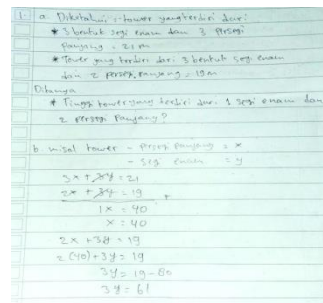 1. a. Diketahui : tower yang terdiri dari
* 3 bentuk segi enam dan 3 persegi
panjang = 21 m
* Tower yang terdiri dari 3 bentuk segi enam
dan 2 persegi panjang = 19m
Ditanya
* Tinggi tower yang terdiri dari 1 segi enam dan
2 persegi panjang?
b. misal tower - persegi panjang = x
- segi enam = y
3x + 3y = 21
2x + 3y = 19 +
1x = 40
x = 40
2x + 3y = 19
2 (40) + 3y = 19
3y = 19 - 80
3y = 61